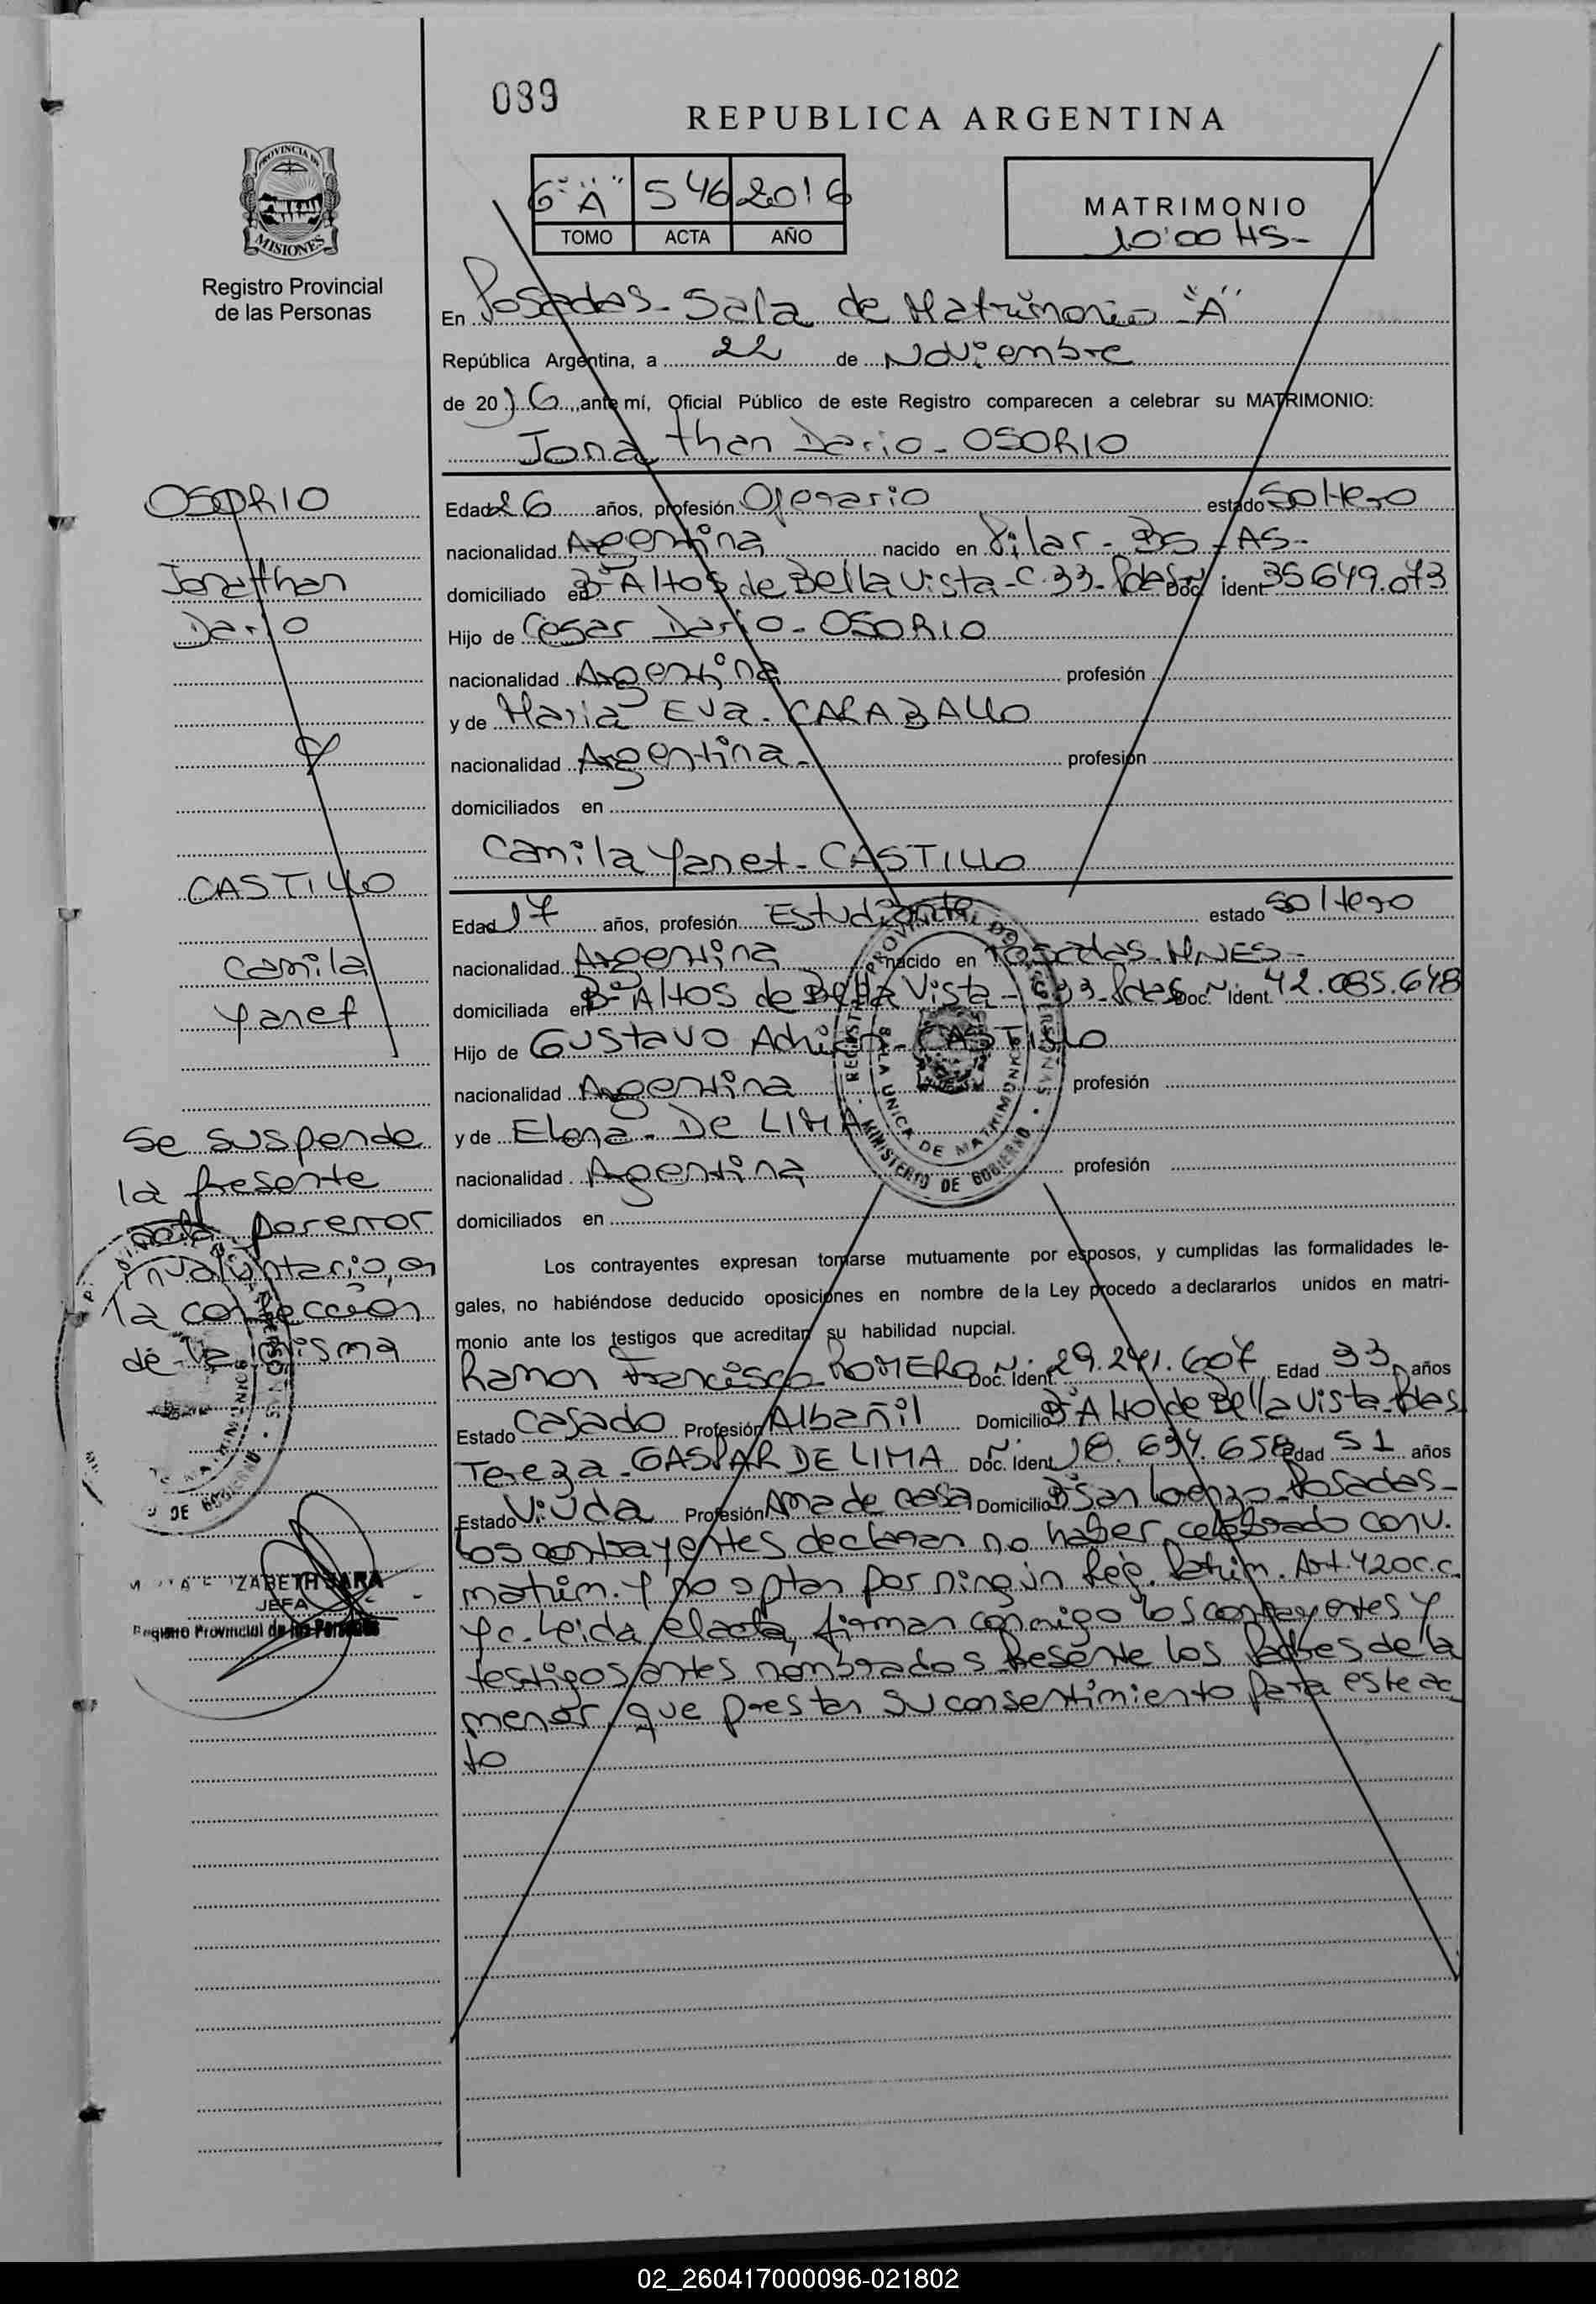 039
REPUBLICA ARGENTINA
PROVINCIA DE
MISIONES
Registro Provincial
de las Personas
6º "A" 546 2016
TOMO ACTA AÑO
MATRIMONIO
10:00 HS-
En Posadas- Sala de Matrimonio "A"
República Argentina, a 22 de Noviembre
de 2016, ante mí, Oficial Público de este Registro comparecen a celebrar su MATRIMONIO:
Jonathan Dario - OSORIO
OSORIO
Jonathan
Dario
y
CASTILLO
Camila
Yanet
Edad 26 años, profesión Operario estado Soltero
nacionalidad Argentina nacido en Pilar - BS - AS-
domiciliado en Bº Altos de Bella Vista - C. 33 - Pdas Doc. Ident. 35.649.073
Hijo de Cesar Dario - OSORIO
nacionalidad Argentina profesión
y de Maria Eva - CARABALLO
nacionalidad Argentina - profesión
domiciliados en
Camila Yanet - CASTILLO
Edad 17 años, profesión Estudiante estado Soltero
nacionalidad Argentina nacido en Posadas - MNES -
domiciliada en Bº Altos de Bella Vista - C 33 - Pdas Doc. Ident. 42.085.648
Hijo de Gustavo Adrian - CASTILLO
nacionalidad Argentina profesión
y de Elena - De LIMA
nacionalidad Argentina profesión
domiciliados en
REGISTRO PROVINCIAL DE LAS PERSONAS
SALA UNICA DE MATRIMONIOS
MINISTERIO DE GOBIERNO
Se suspende
la presente
acta por error
involuntario, en
la confección
de la misma
Los contrayentes expresan tomarse mutuamente por esposos, y cumplidas las formalidades le-
gales, no habiéndose deducido oposiciones en nombre de la Ley procedo a declararlos unidos en matri-
monio ante los testigos que acreditan su habilidad nupcial.
Ramon Francisco - ROMERO Doc. Ident. 29.241.607 Edad 33 años
Estado Casado Profesión Albañil Domicilio Bº Alto de Bella Vista - Pdas
Tereza - GASPAR DE LIMA Doc. Ident. 18.694.658 Edad 51 años
Estado Viuda Profesión Ama de casa Domicilio Bº San Lorenzo - Posadas -
Los contrayentes declaran no haber celebrado conv.
matrim. y no optan por ningún Reg. Patrim. Art. 420 c.c.
y c. Leida el acta, firman conmigo los contrayentes y
testigos antes nombrados. Presente los Padres de la
menor, que prestan su consentimiento para este ac
to
ZABETH JARA
JEFA
Registro Provincial de las Personas
02_260417000096-021802